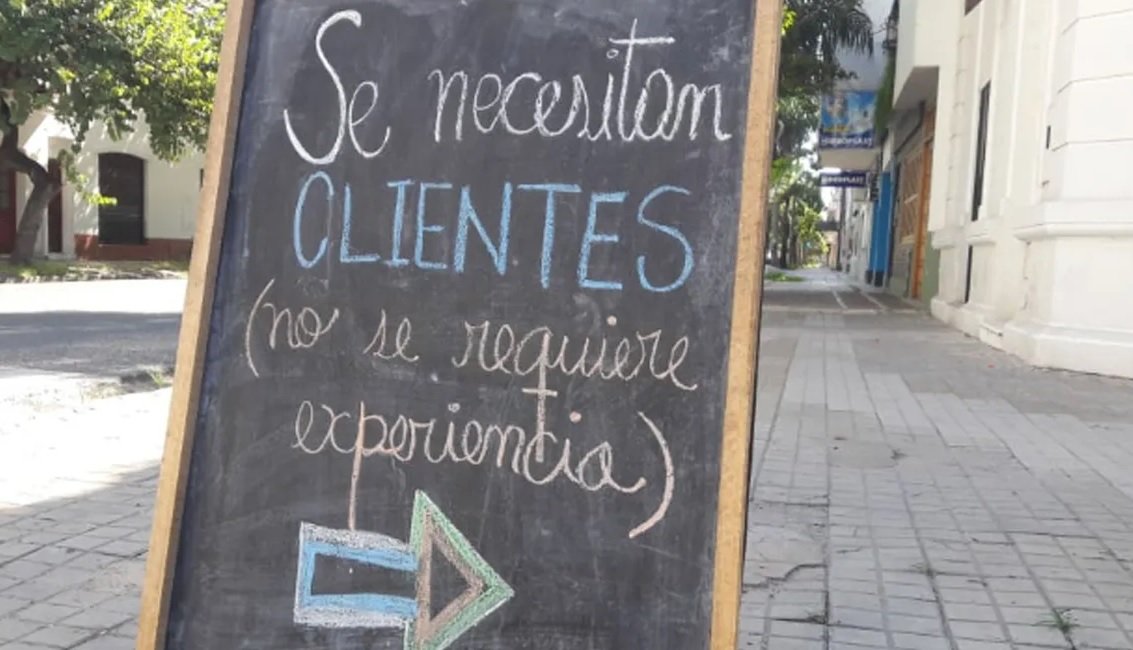 Se necesitan
CLIENTES
(no se requiere
experiencia)